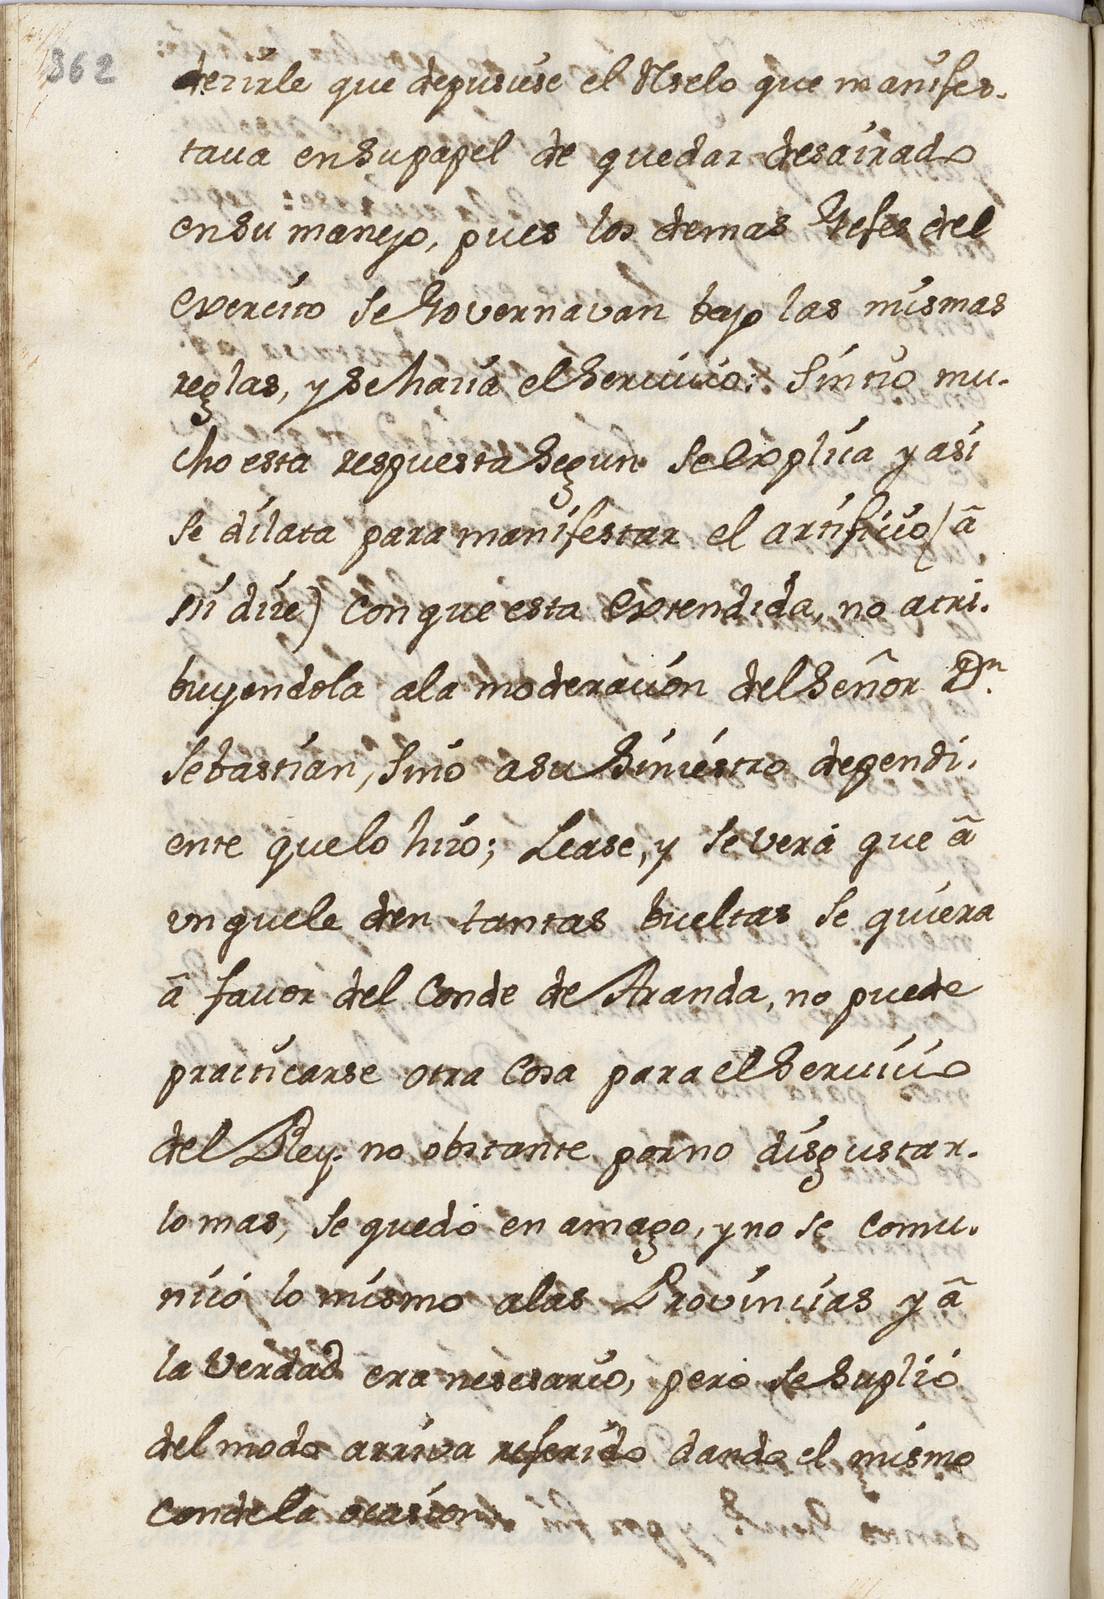 362
decirle que depusiese el Rselo que manifes-
tava en su papel de quedar desairado
en su manejo, pues los demas Gefes del
exercito se Governavan bajo las mismas
reglas, y se hacia el Servicio: Sintio mu-
cho esta respuesta segun se explica y asi
se dilata para manifestar el artificio (â
su dice) con que esta extendida, no atri-
buyendola a la moderacion del Señor Dn.
Sebastian, sino a su Siniestro dependi-
ente que lo hizo; Lease, y se verá que â
un que le den tantas bueltas se quiera
â favor del Conde de Aranda, no puede
practicarse otra Cosa para el Servicio
del Rey. no obstante por no disgustar-
lo mas, se quedó en amago, y no se comu-
nicó lo mismo a las Provincias y â
la Verdad era nesesario, pero se suplió
del modo arriva referido dando el mismo
Conde la ocasion.